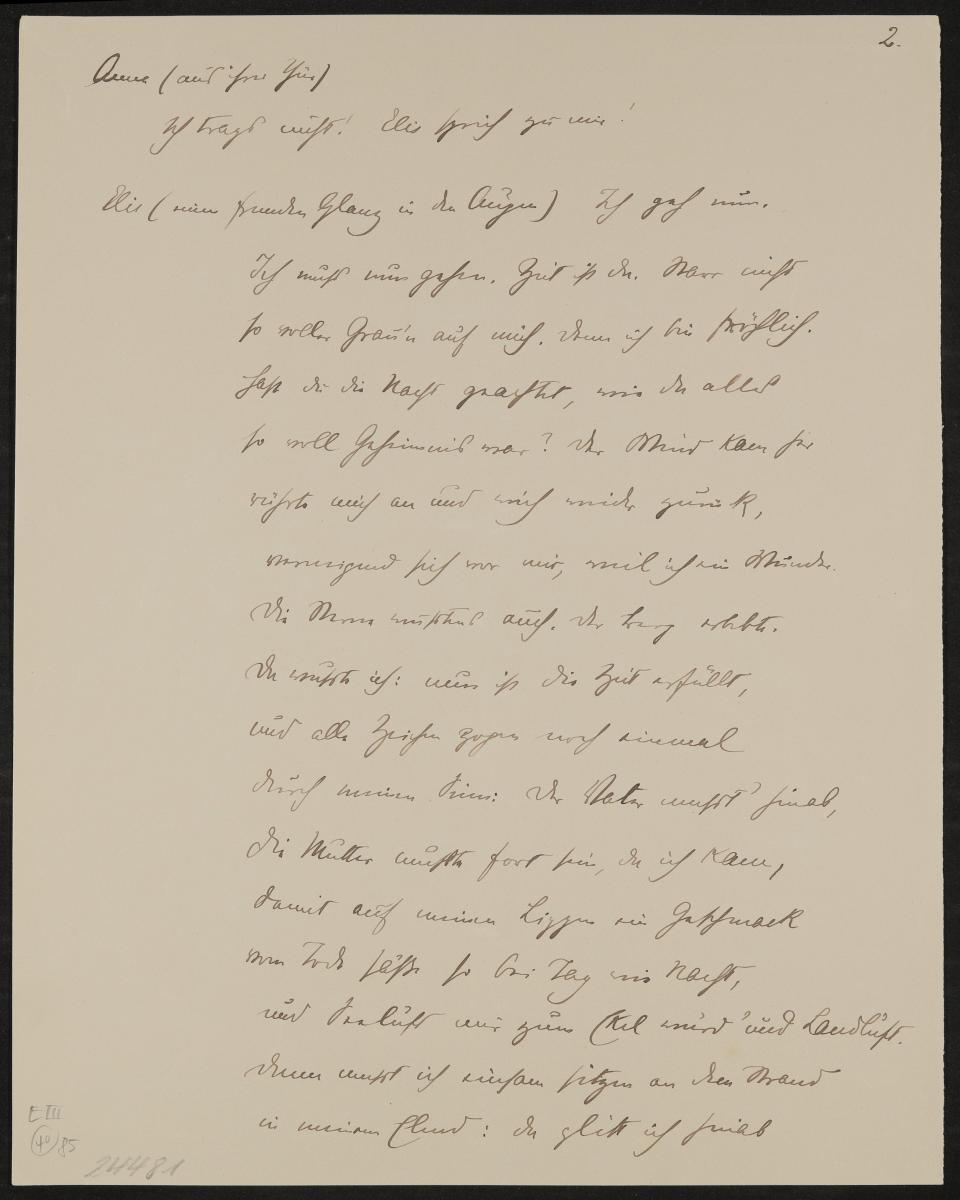 2.
Anna (aus ihrer Thür)
Ich trags nicht! Elis sprich zu mir!
Elis (einen fremden Glanz in den Augen) Ich geh nun.
Ich muß nun gehen. Zeit ist da. Starr nicht
so voller Grau'n auf mich, denn ich bin fröhlich.
Hast du die Nacht geachtet, wie da alles
so voll Geheimnis war? Der Wind kam her
rührte mich an und wich wieder zurück,
verneigend sich vor mir, weil ich ein Wunder.
Die Sterne wußtens auch. Der Berg erbebte.
Da wußte ich: nun ist die Zeit erfüllt,
und alle Zeichen zogen noch einmal
durch meinen Sinn: Der Vater mußt' hinab,
die Mutter mußte fort sein, da ich kam,
damit auf meinen Lippen ein Geschmack
vom Tode säße so bei Tag wie Nacht,
und Seeluft mir zum Ekel würd' und Landluft.
Dann mußt ich einsam sitzen an dem Strand
in meinem Elend: da glitt ich hinab
E III
40 85
24481